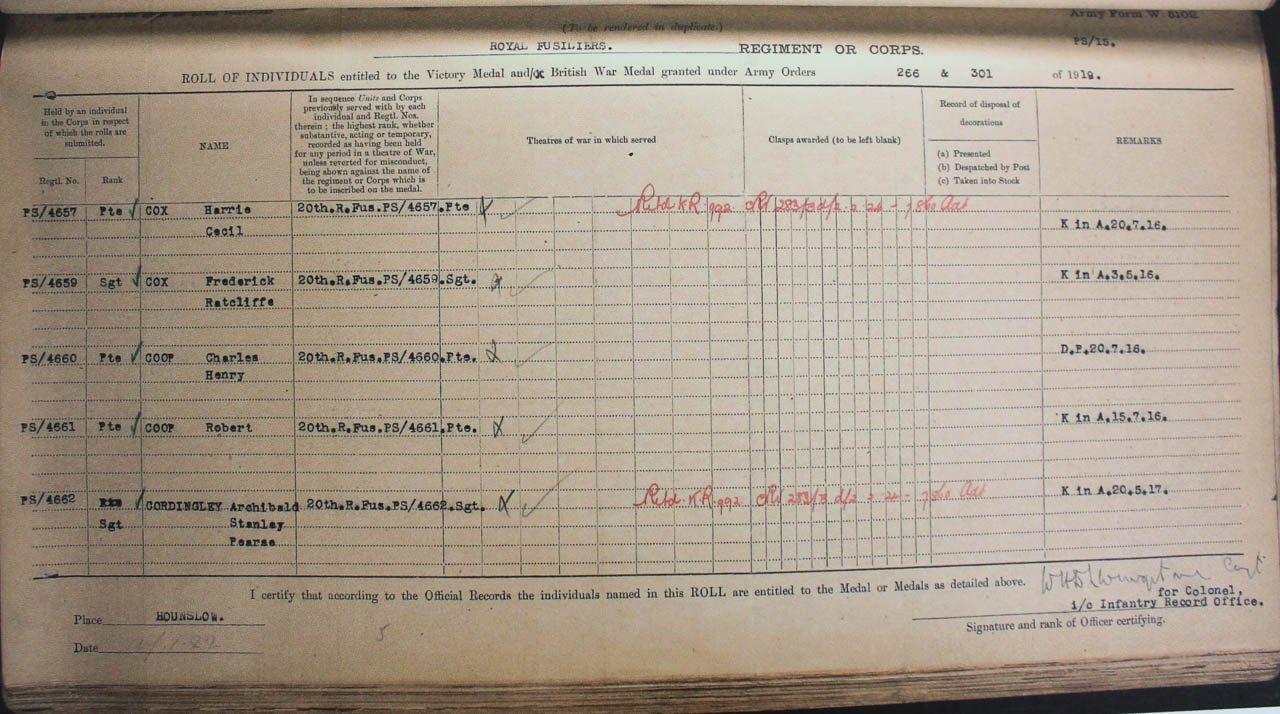 (To be rendered in duplicate.)
Army Form W 5102
PS/15.
ROYAL FUSILIERS. REGIMENT OR CORPS.
ROLL OF INDIVIDUALS entitled to the Victory Medal and/or British War Medal granted under Army Orders 266 & 301 of 1919.
Held by an individual
in the Corps in respect
of which the rolls are
submitted.
Regtl. No. Rank
NAME
In sequence Units and Corps
previously served with by each
individual and Regtl. Nos.
therein; the highest rank, whether
substantive, acting or temporary,
recorded as having been held
for any period in a theatre of War,
unless reverted for misconduct,
being shown against the name of
the regiment or Corps which is
to be inscribed on the medal.
Theatres of war in which served
Clasps awarded (to be left blank)
Record of disposal of
decorations
(a) Presented
(b) Despatched by Post
(c) Taken into Stock
REMARKS
PS/4657 Pte COX Harrie 20th.R.Fus.PS/4657.Pte Retd KR 992
Cecil K in A.20.7.16.
PS/4659 Sgt COX Frederick 20th.R.Fus.PS/4659.Sgt. K in A.3.5.16.
Ratcliffe
PS/4660 Pte COOP Charles 20th.R.Fus.PS/4660.Pte. D.P.20.7.16.
Henry
PS/4661 Pte COOP Robert 20th.R.Fus.PS/4661.Pte. K in A.15.7.16.
PS/4662 CORDINGLEY Archibald 20th.R.Fus.PS/4662.Sgt. Retd KR 992 K in A.20.5.17.
Sgt Stanley
Pearse
I certify that according to the Official Records the individuals named in this ROLL are entitled to the Medal or Medals as detailed above.
Capt
for Colonel,
i/c Infantry Record Office.
Signature and rank of Officer certifying.
Place HOUNSLOW.
Date
5